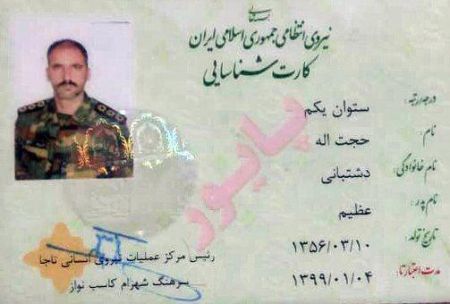 نیروی انتظامی جمهوری اسلامی ایران
کارت شناسایی
درجه/رتبه: ستوان یکم
نام: حجت اله
نام خانوادگی: دشتبانی
نام پدر: عظیم
تاریخ تولد: ۱۳۵۶/۰۳/۱۰
مدت اعتبار تا: ۱۳۹۹/۰۱/۰۴
پایور
رئیس مرکز عملیات نیروی انسانی ناجا
سرهنگ شهرام کاسب نواز